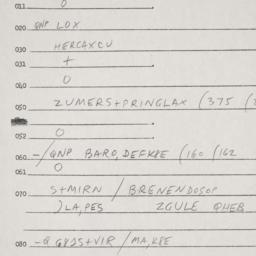 011 0
020 QNP LOX
030 HERCAXCU
031 +
0
040
050 ZUMERS+PRINGLAX (375
052
0
060 -/QNP BARO, DEFKBE (160 /162
061 0
070 S+MIRN / BRENENDOSOP
)LA,PES ZGULE QHEB
080 -Q GYDS+VIR /MA,KBE